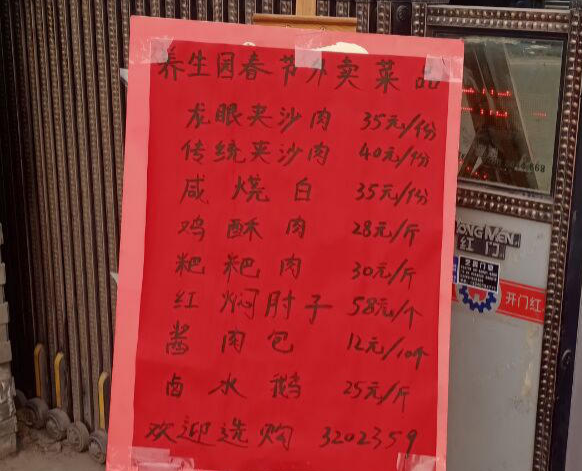 养生园春节外卖菜品
龙眼夹沙肉 35元/份
传统夹沙肉 40元/份
咸烧白 35元/份
鸡酥肉 28元/斤
粑粑肉 30元/斤
红焖肘子 58元/个
酱肉包 12元/10个
卤水鹅 25元/斤
欢迎选购 3202359
HONGMEN
红门
开门红